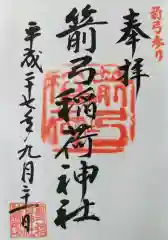 箭弓参り
奉拝
箭弓稲荷神社
平成二十七年九月二十一日